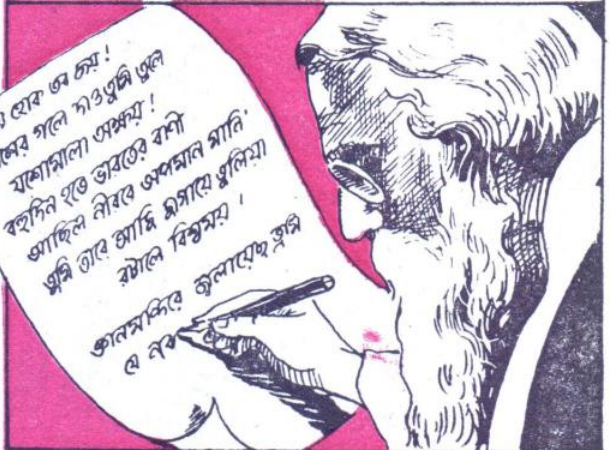 হোক তব জয়!
গলে দাও তুমি তুলে
যশোমালা অক্ষয়!
বহুদিন হতে ভারতের বাণী
আছিল নীরবে অপমান মানি'
তুমি তারে আজি জাগায়ে তুলিয়া
রটালে বিশ্বময়!
জ্ঞানমন্দিরে জ্বালায়েছ তুমি
যে নব